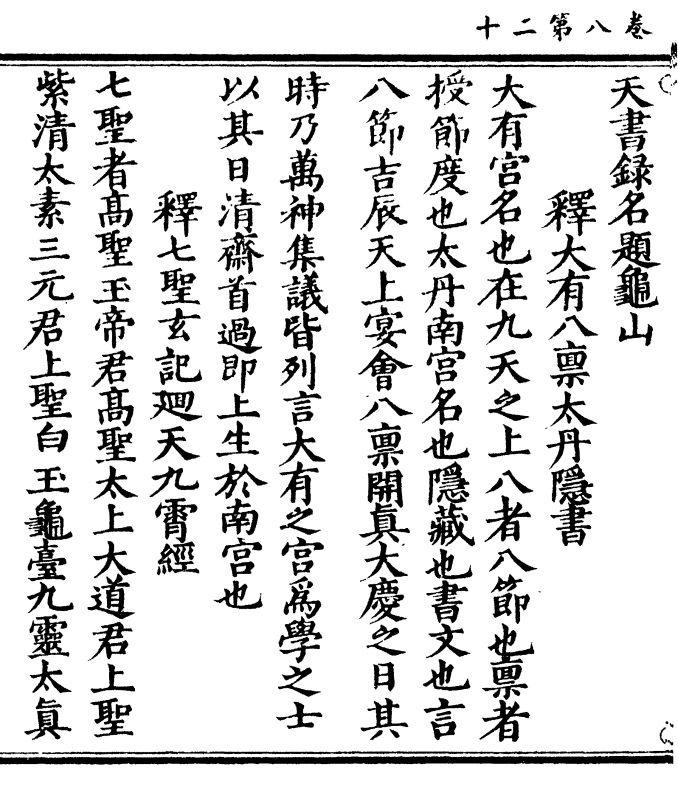 卷八第二十
天書録名題龜山
釋大有八禀太丹隱書
大有宫名也在九天之上八者八節也禀者
授節度也太丹南宫名也隱藏也書文也言
八節吉辰天上宴會八禀開真大慶之日其
時乃萬神集議皆列言大有之宫爲學之士
以其日清齋首過即上生於南宫也
釋七聖玄記迴天九霄經
七聖者髙聖玉帝君髙聖太上大道君上聖
紫清太素三元君上聖白玉龜臺九靈太真